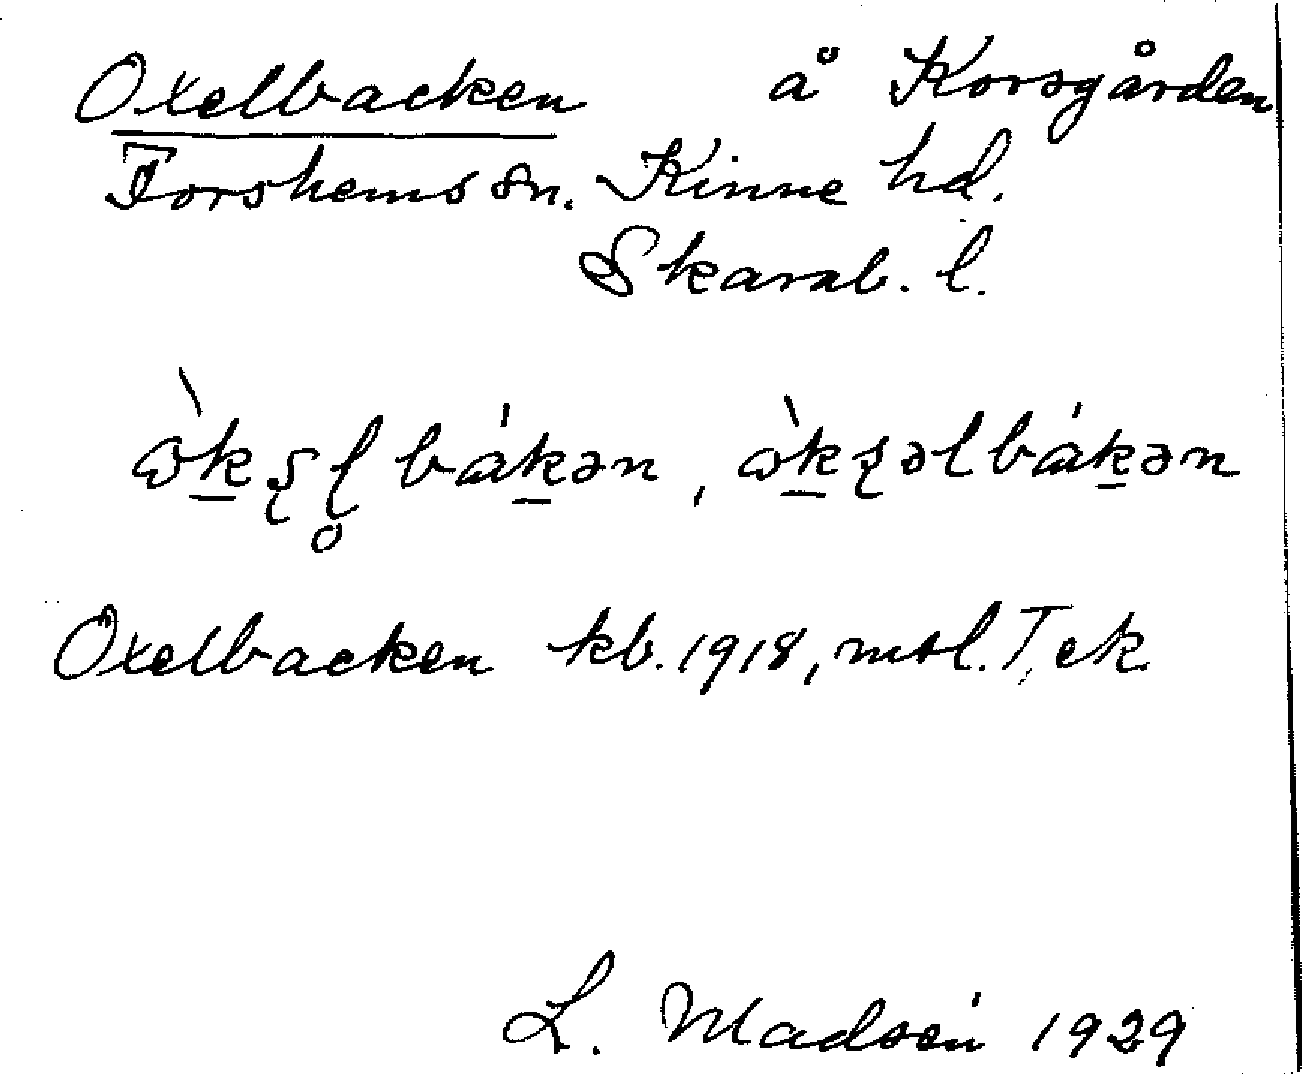 Oxelbacken å Korsgården
Forshems sn. Kinne hd.
Skarab. l.
ɷ̀kʂl̥ bákən, ɷ̀kʂəlbákən
Oxelbacken kb. 1918, mtl. T, ek
L. Madsén 1929